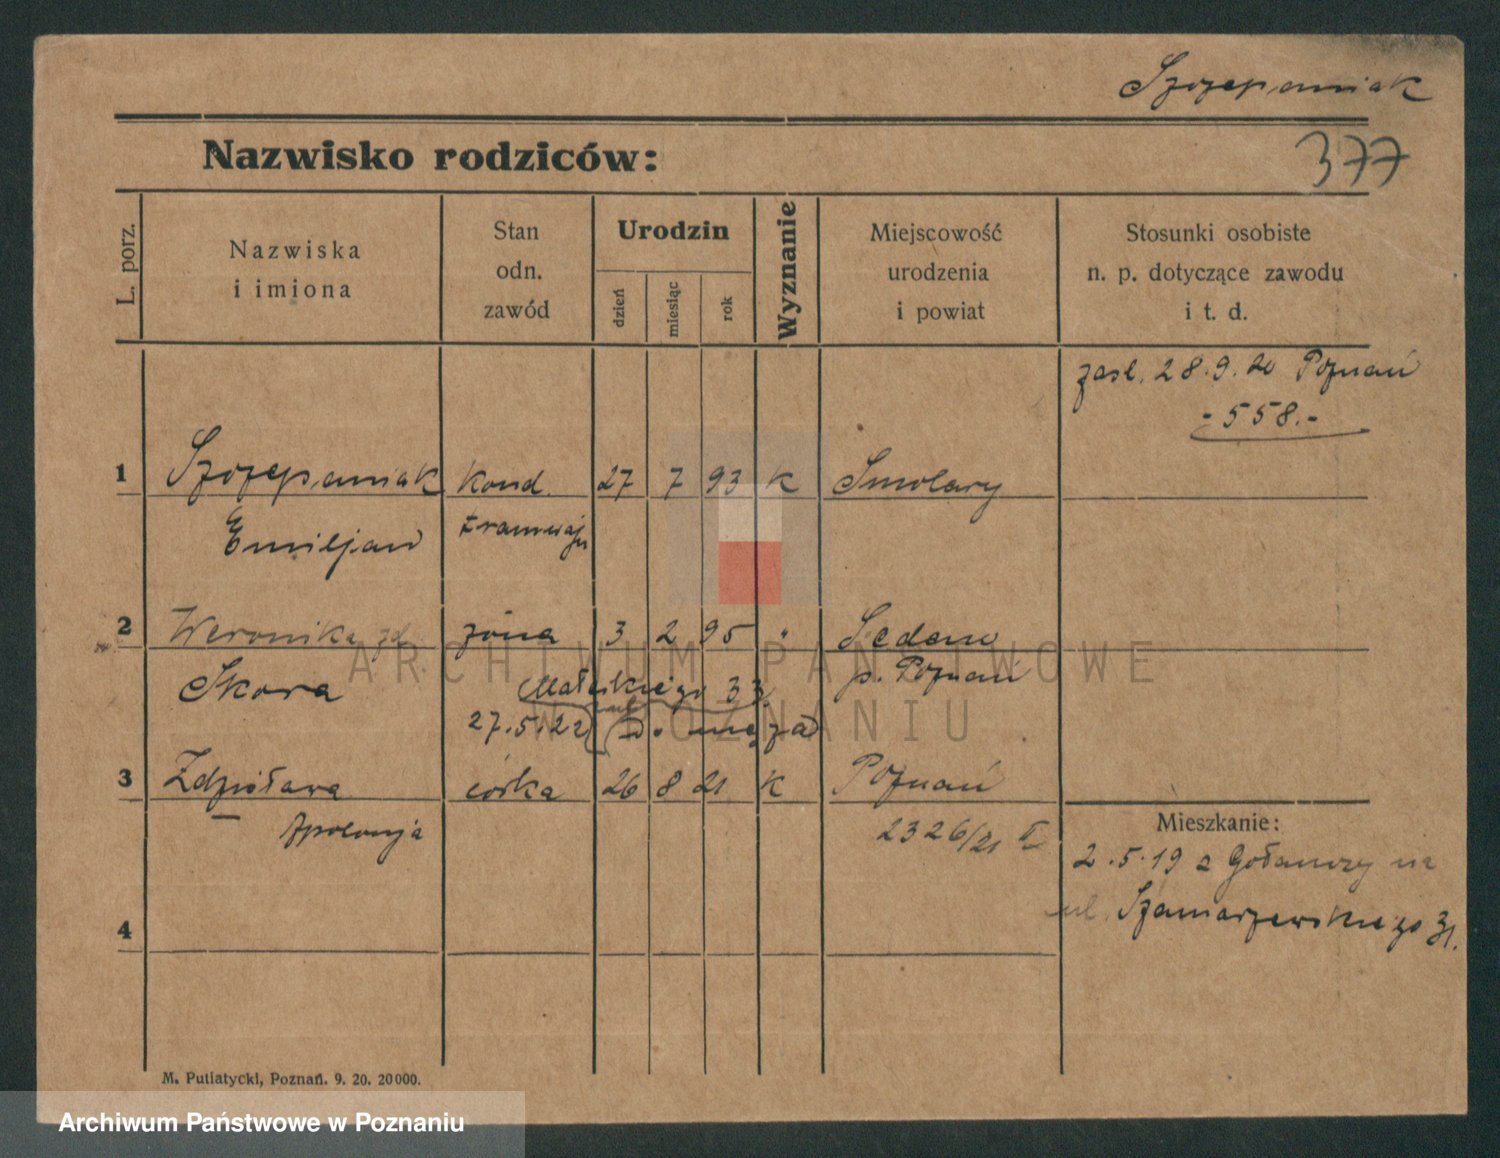 Szczepaniak
377
Nazwisko rodziców:
L. porz.
Nazwiska
i imiona
Stan
odn.
zawód
Urodzin
dzień
miesiąc
rok
Wyznanie
Miejscowość
urodzenia
i powiat
Stosunki osobiste
n. p. dotyczące zawodu
i t. d.
zasl. 28.9.20 Poznań
-558.-
1 Szczepaniak kond. 27 7 93 k Smolary
Emiljan tramwaju
2 Weronika zd. żona 3 2 95 " Sedan
Skora p. Poznań
Małeckiego 33
27.5.22 do męża
3 Zdzisława córka 26 8 21 k Poznań
Apolonja 2326/21
Mieszkanie:
2.5.19 z Gołańczy na
ul. Szamarzewskiego 31.
4
M. Putiatycki, Poznań. 9. 20. 20000.
ARCHIWUM PAŃSTWOWE
W POZNANIU
Archiwum Państwowe w Poznaniu